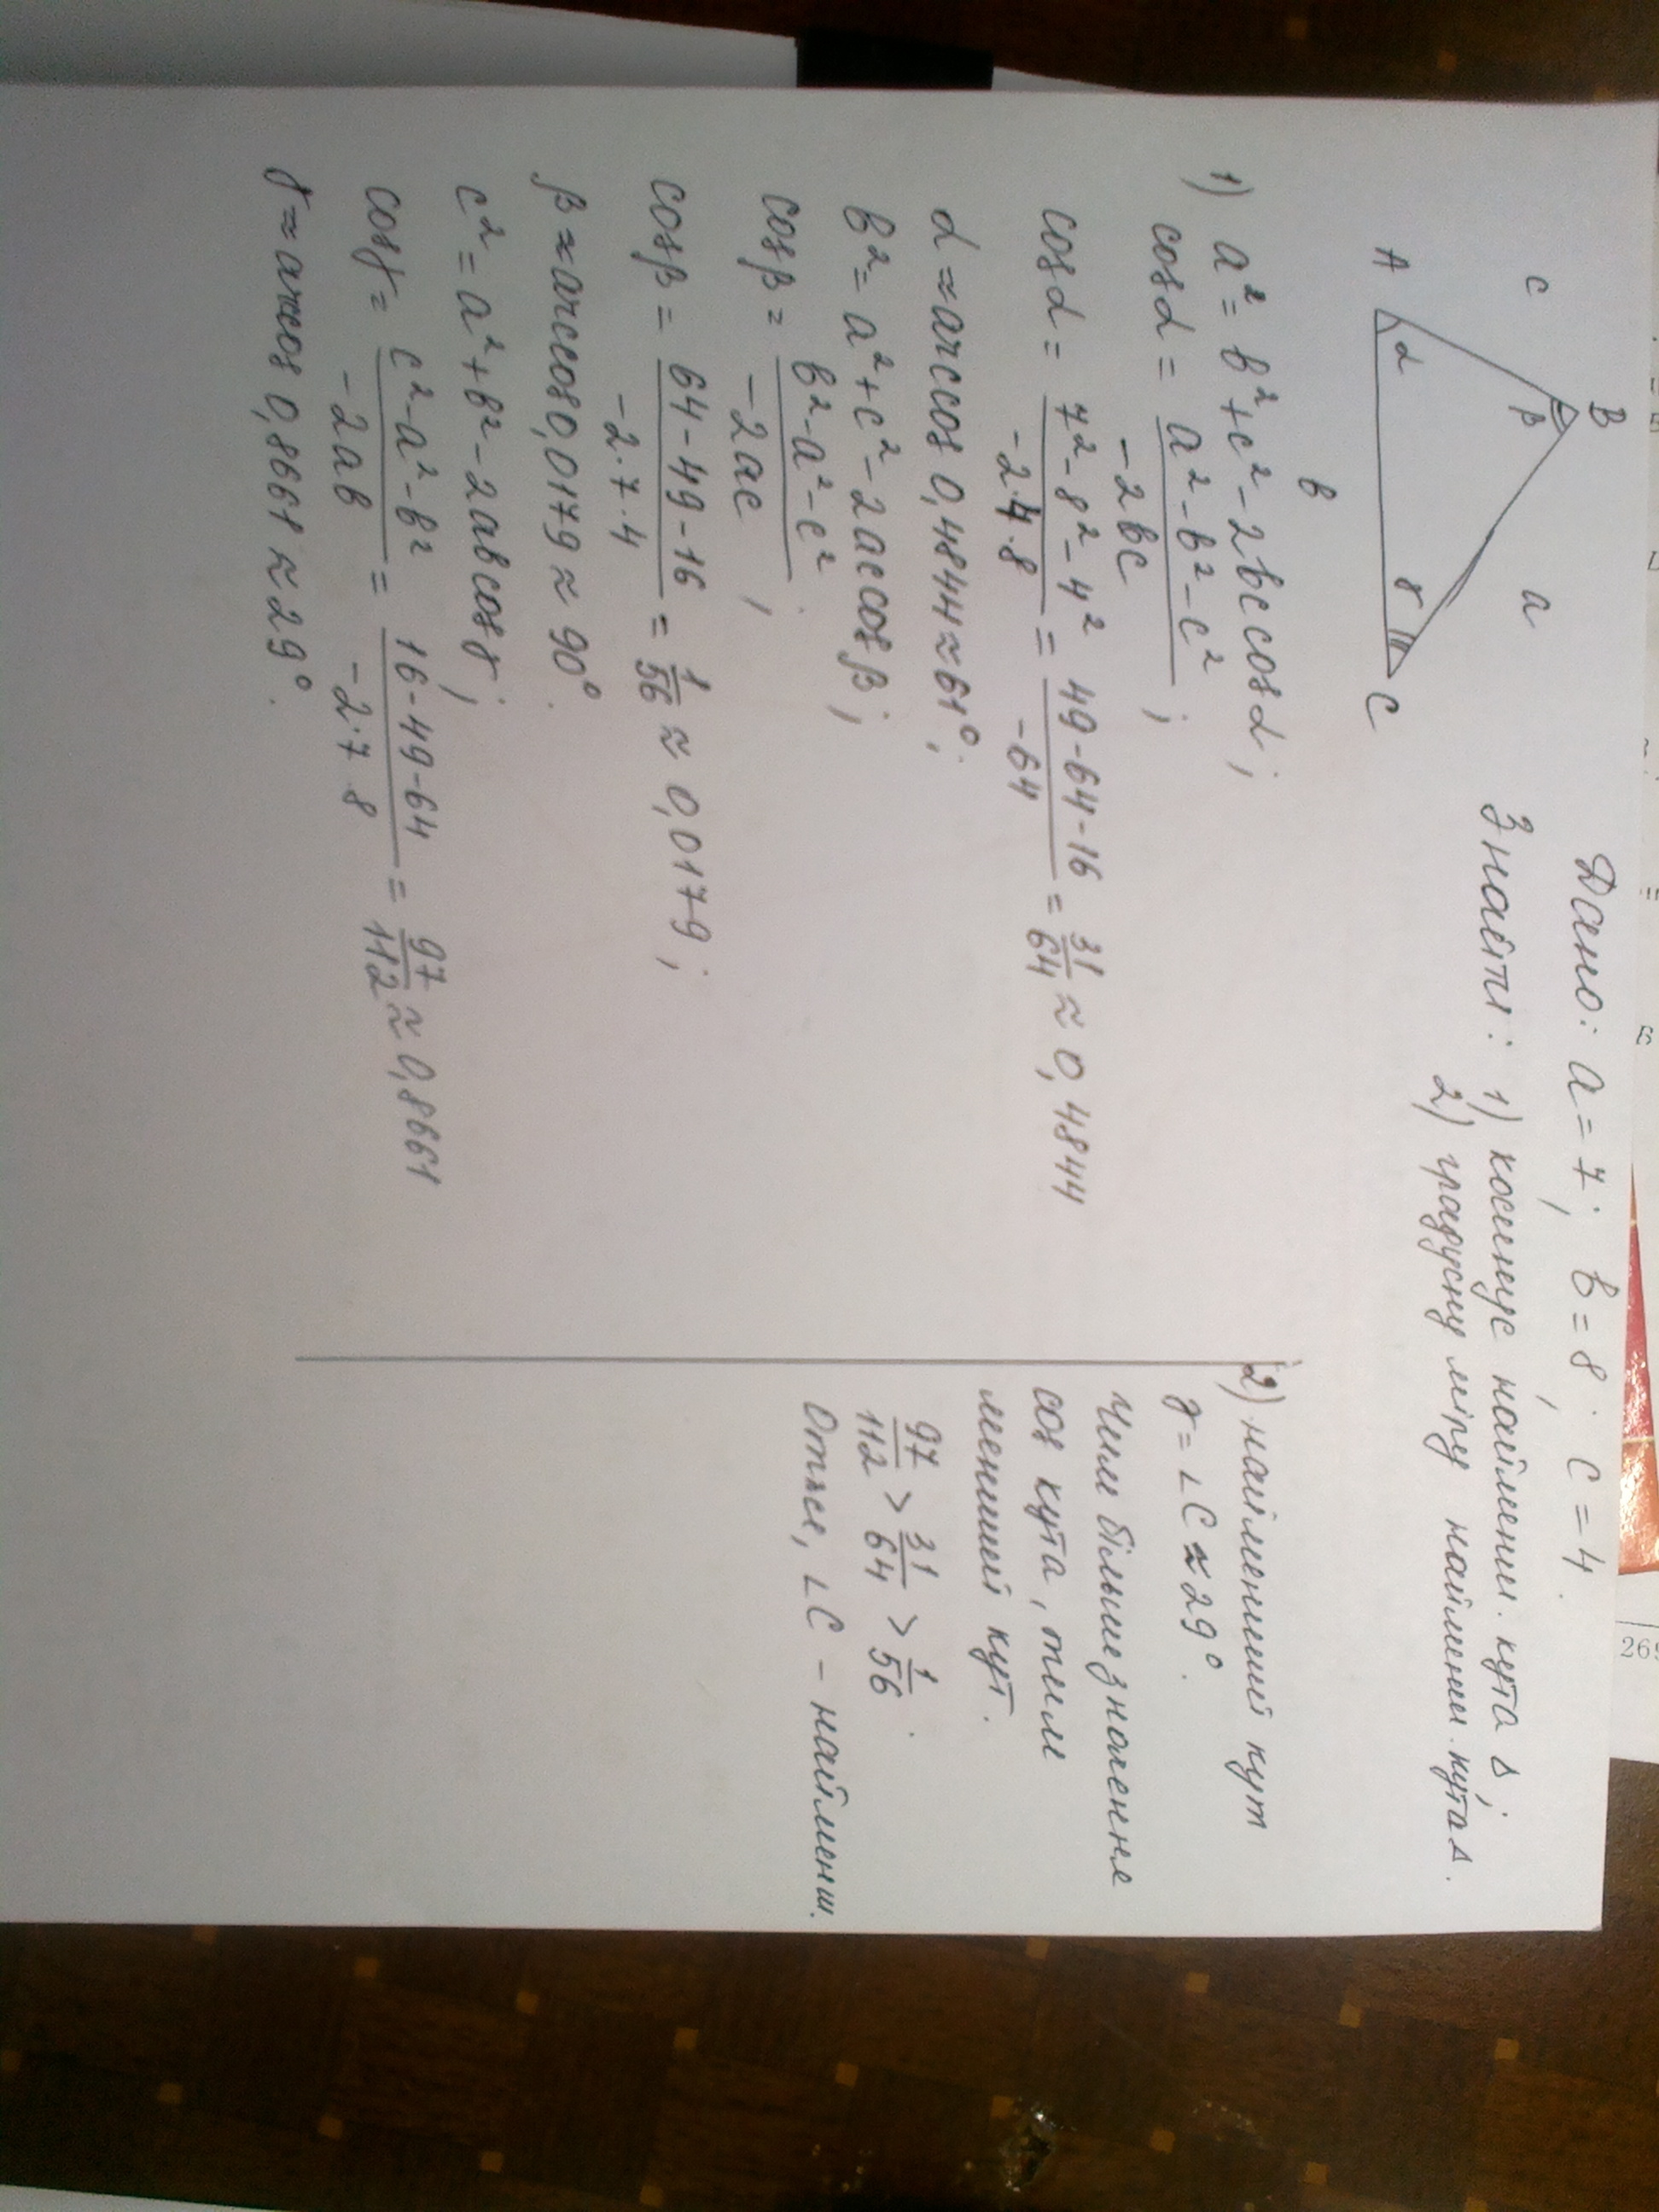 Дано: a = 7; b = 8; c = 4.
Знайти: 1) косинус найменш. кута Δ;
2) градусну міру найменш. кута Δ.
B
c
β
a
A
α
γ
C
b
1) a² = b² + c² - 2bc cosα;
cosα = (a² - b² - c²)/(-2bc);
cosα = (7² - 8² - 4²)/(-2·4·8) = (49-64-16)/(-64) = 31/64 ≈ 0,4844
α ≈ arccos 0,4844 ≈ 61°;
b² = a² + c² - 2ac cosβ;
cosβ = (b² - a² - c²)/(-2ac);
cosβ = (64-49-16)/(-2·7·4) = 1/56 ≈ 0,0179;
β ≈ arccos 0,0179 ≈ 90°.
c² = a² + b² - 2ab cosγ;
cosγ = (c² - a² - b²)/(-2ab) = (16-49-64)/(-2·7·8) = 97/112 ≈ 0,8661
γ ≈ arccos 0,8661 ≈ 29°.
2) найменший кут
γ = ∠C ≈ 29°.
Чим більше значення
cos кута, тим
менший кут.
97/112 > 31/64 > 1/56.
Отже, ∠C - найменш.
В
265